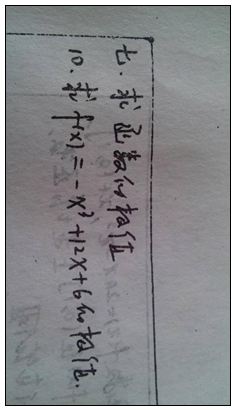 七.求函数的极值
10.求f(x)=-x³+12x+6的极值.